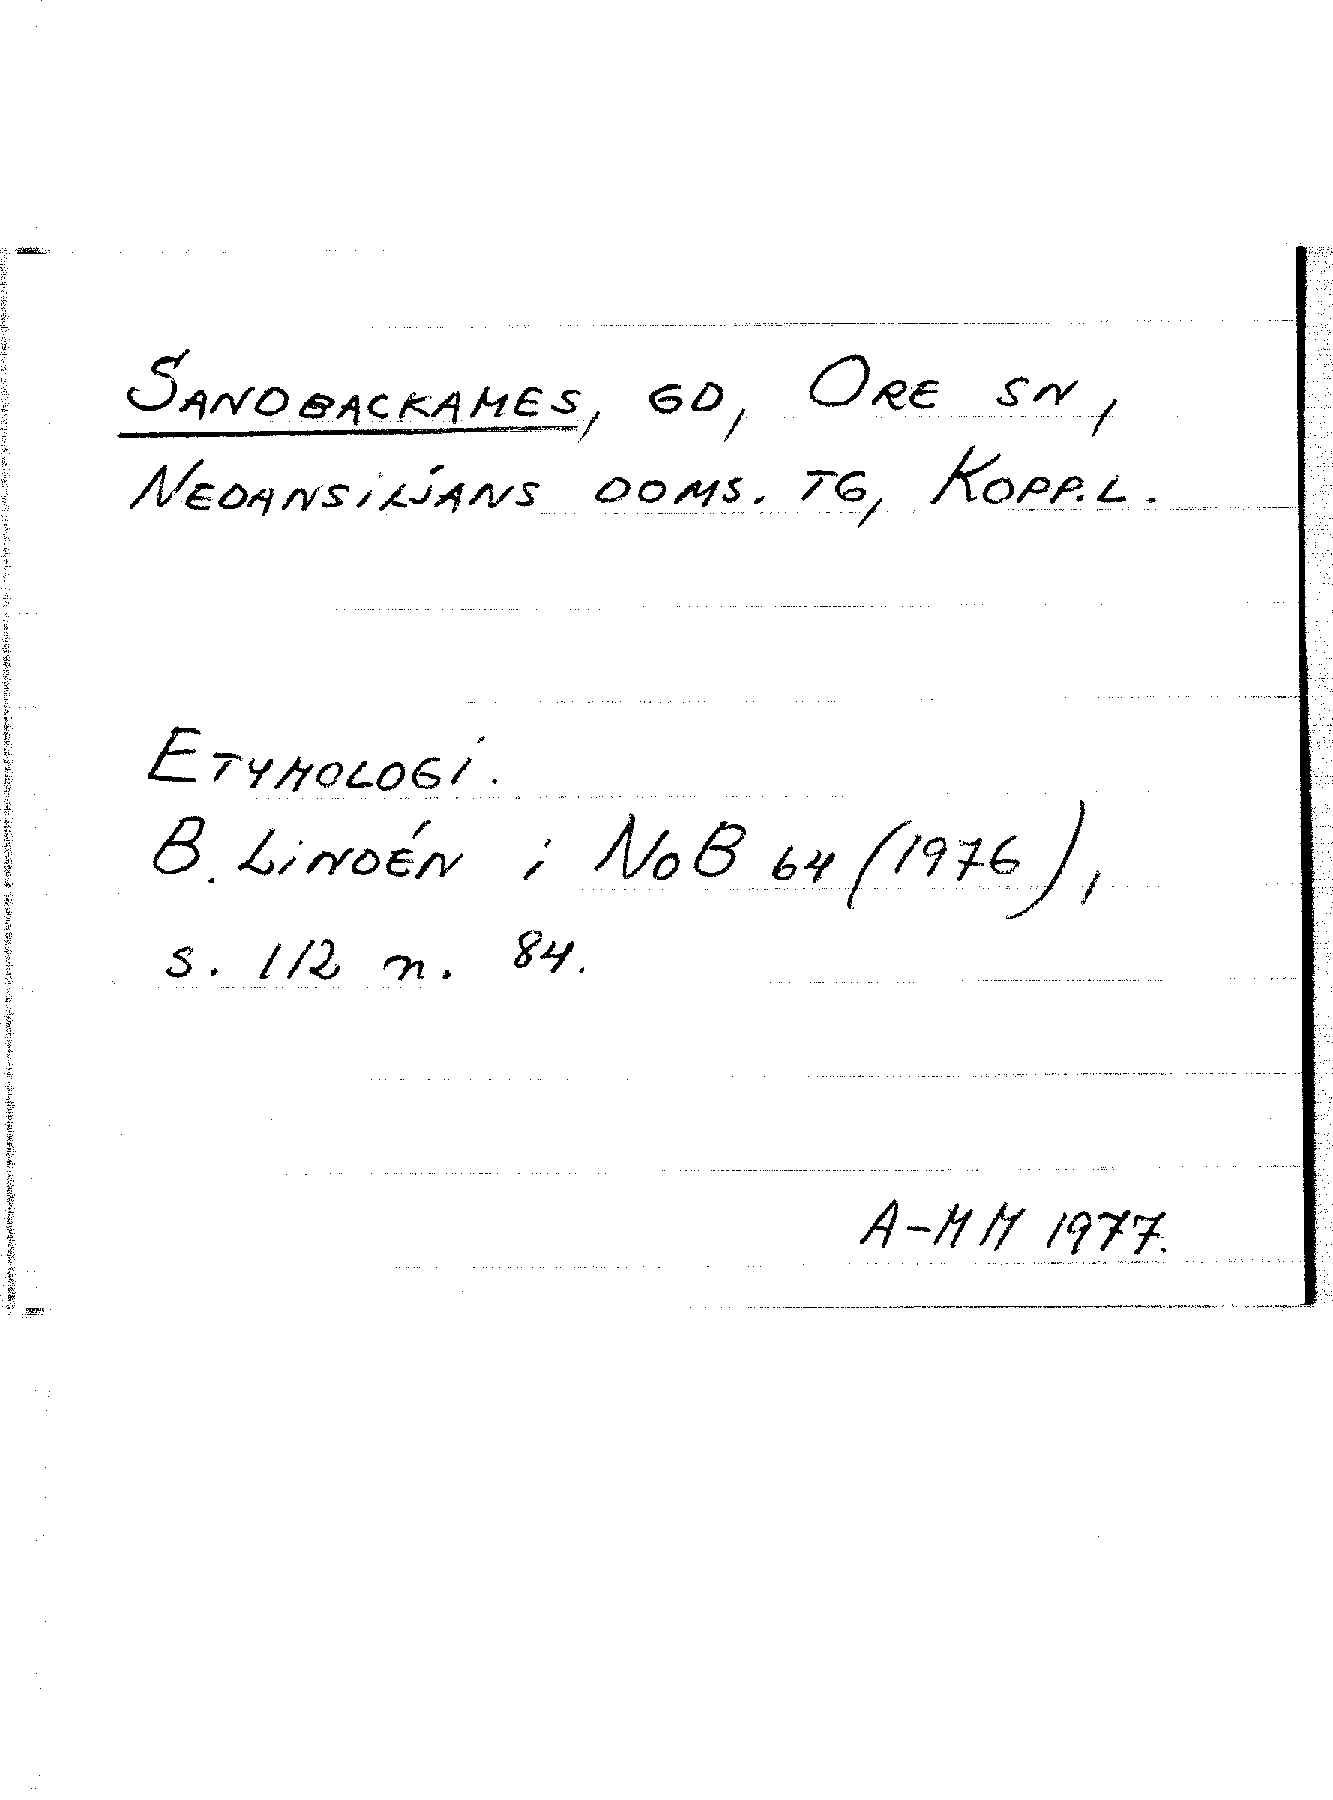 SANDBACKAMES, GD, ORE SN,
NEDANSILJANS DOMS. TG, KOPP.L.
ETYMOLOGI.
B. LINDÉN i NoB 64 (1976),
s. 112 n. 84.
A-MM 1977.